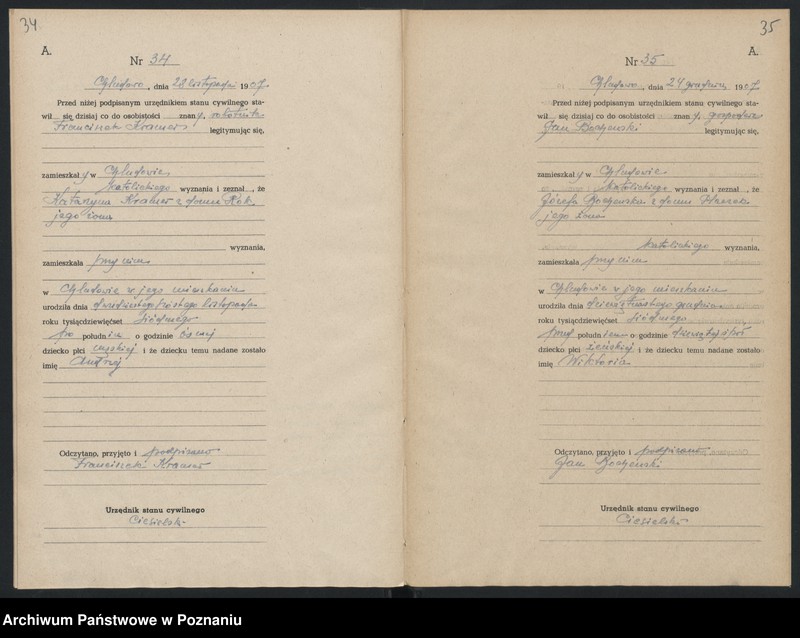 34
A.
Nr 34
Chludowo, dnia 28 listopada 1907
Przed niżej podpisanym urzędnikiem stanu cywilnego sta-
wił się dzisiaj co do osobistości znany, robotnik
Franciszek Kramer legitymując się,
zamieszkały w Chludowie
katolickiego wyznania i zeznał, że
Katarzyna Kramer z domu Kok
jego żona
wyznania,
zamieszkała przy nim
w Chludowie w jego mieszkaniu
urodziła dnia dwudziestego szóstego listopada
roku tysiącdziewięćset siódmego
po południu o godzinie ósmej
dziecko płci męskiej i że dziecku temu nadane zostało
imię Andrzej
Odczytano, przyjęto i podpisano
Franciszek Kramer
Urzędnik stanu cywilnego
Ciesielski
35
A.
Nr 35
Chludowo, dnia 24 grudnia 1907
Przed niżej podpisanym urzędnikiem stanu cywilnego sta-
wił się dzisiaj co do osobistości znany, gospodarz
Jan legitymując się,
zamieszkały w Chludowie
katolickiego wyznania i zeznał, że
Józefa z domu
jego żona
katolickiego wyznania,
zamieszkała przy nim
w Chludowie w jego mieszkaniu
urodziła dnia grudnia
roku tysiącdziewięćset siódmego
przed południem o godzinie
dziecko płci żeńskiej i że dziecku temu nadane zostało
imię Wiktoria
Odczytano, przyjęto i podpisano
Jan
Urzędnik stanu cywilnego
Ciesielski
Archiwum Państwowe w Poznaniu